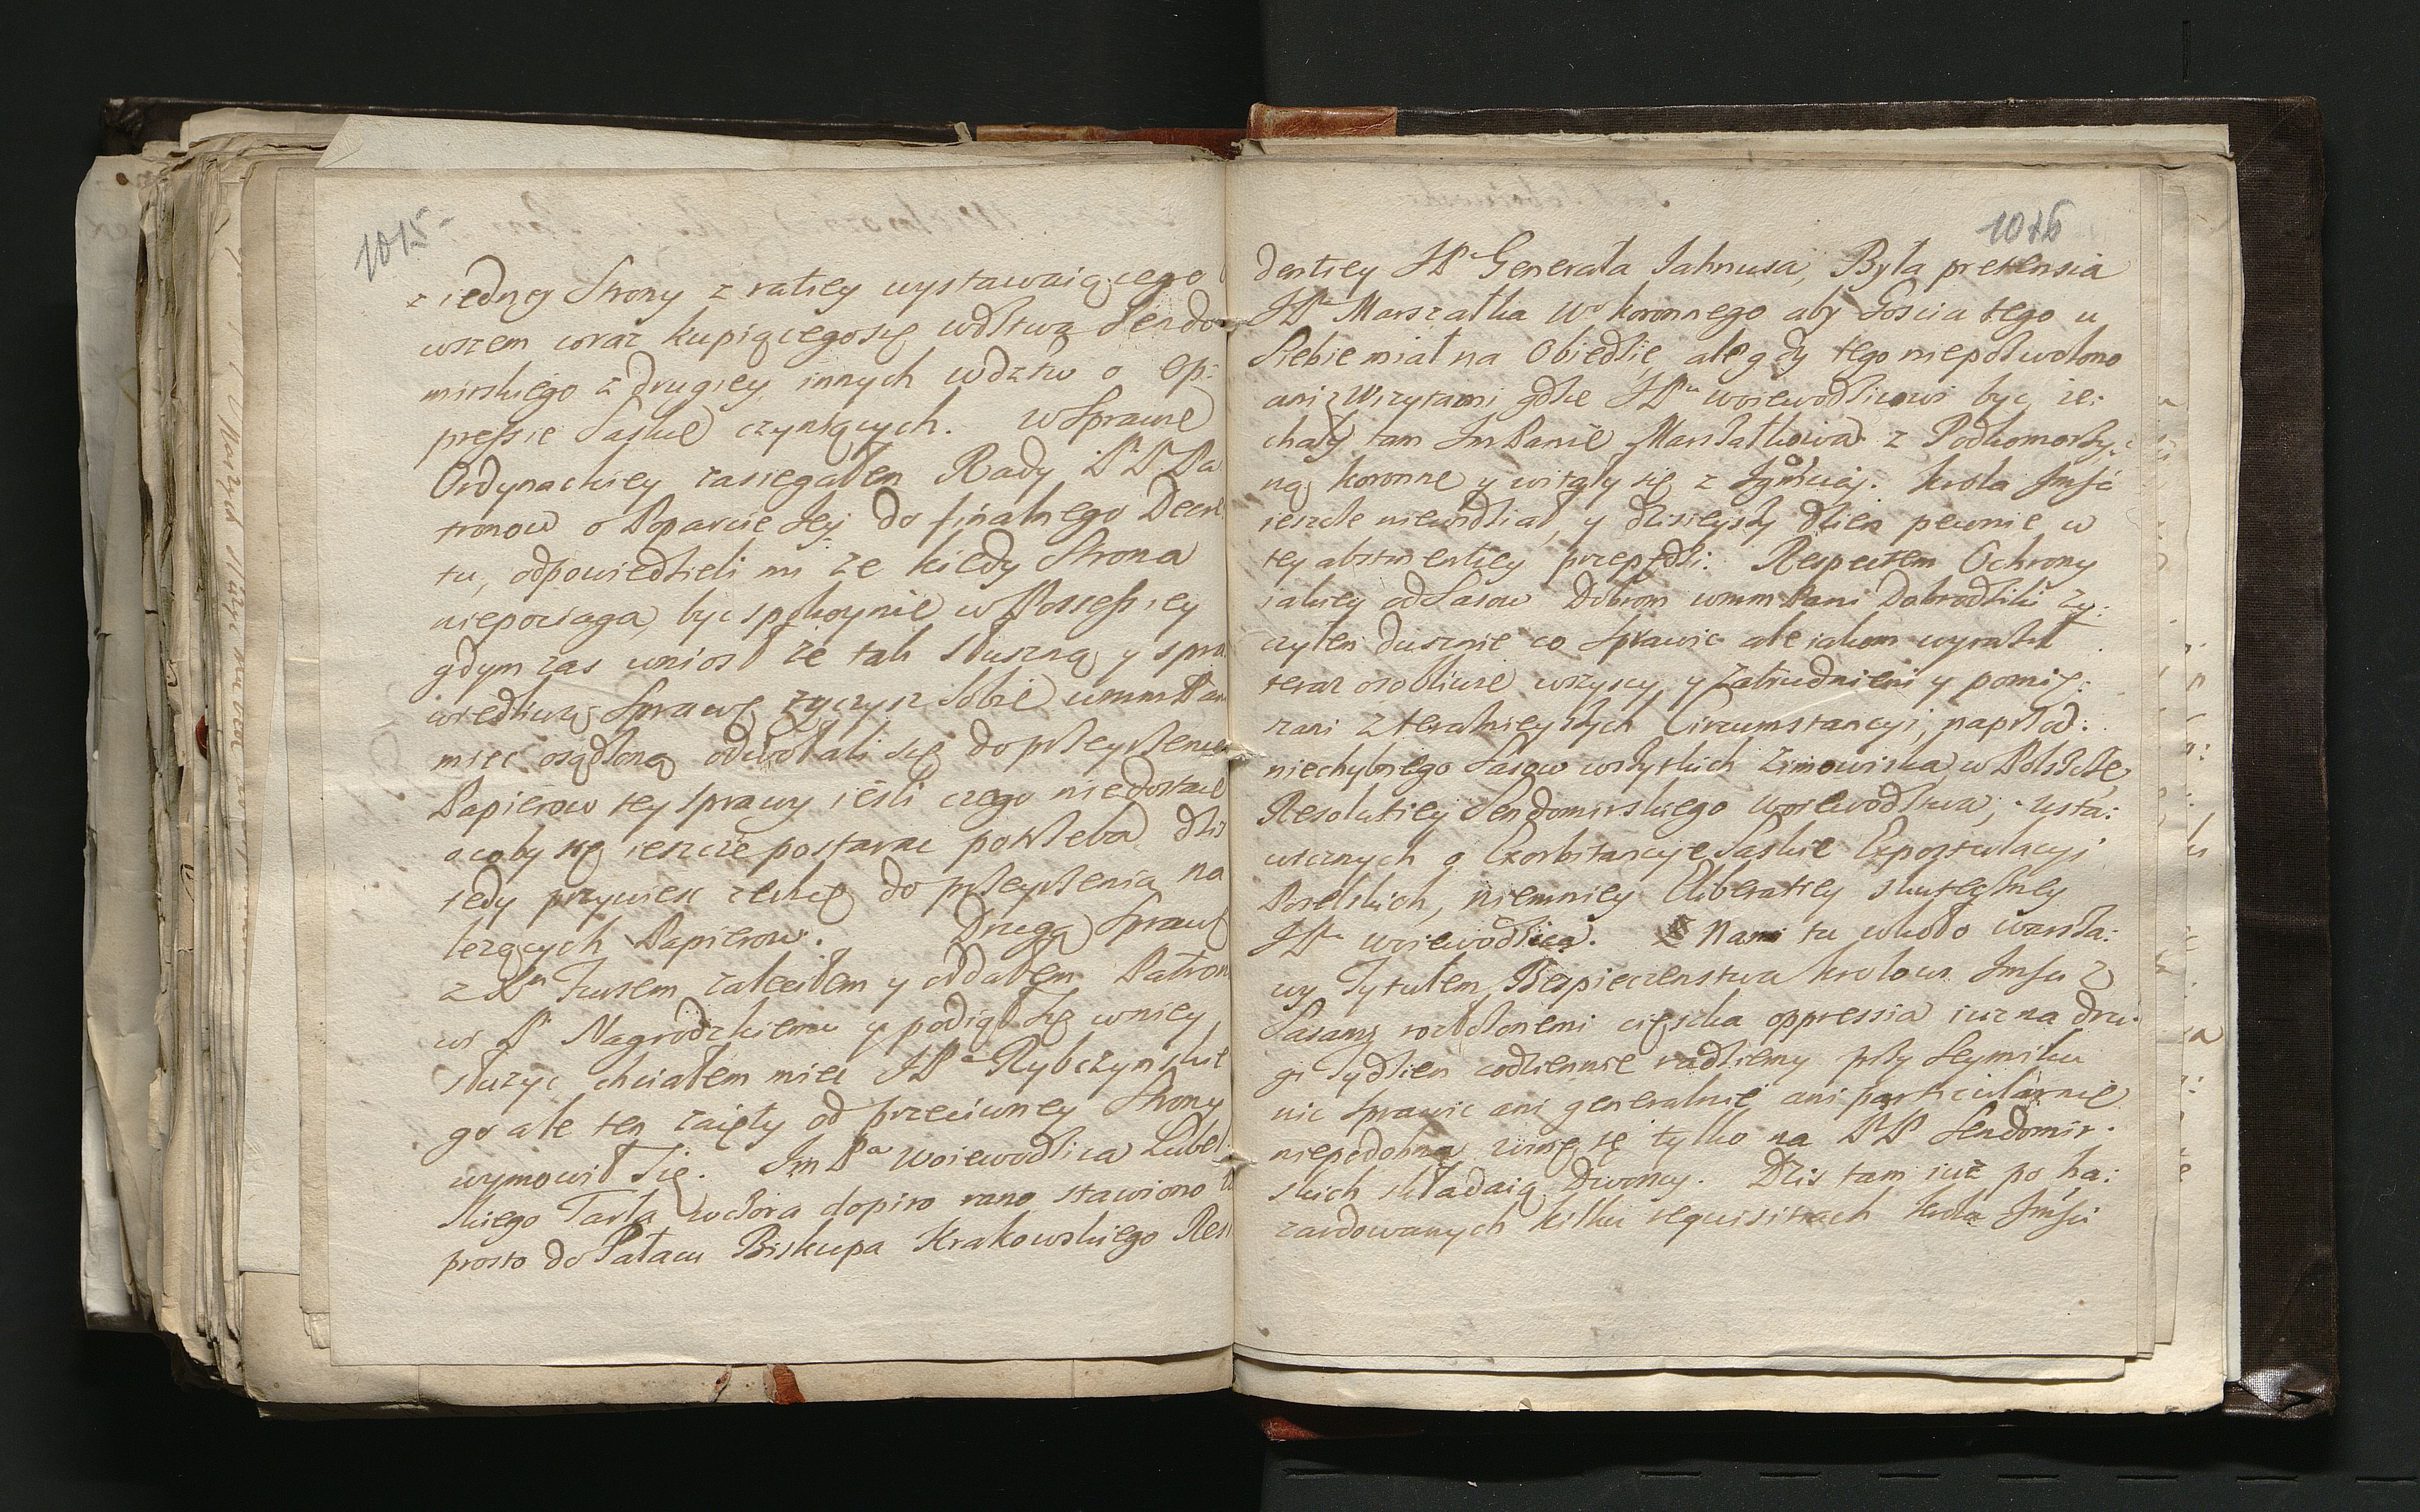 1015
z iedney Strony z ratiey wystawaiącego
wszem coraz kupiącego się wdztwa Sendo
mirskiego z drugiey innych wdztw o op:
pressie Saskie czyniących. W Sprawie
Ordynackiey zasiegałem Rady PP Pa
tronow o Poparcie Jey do finalnego Decre
tu, odpowiedzieli mi ze kiedy Strona
niepociaga, byc spokoynie w Possessiey
gdym zas wniosł ze tak słuszną y spra
wiedliwą Sprawę zyczysz Sobie wmm Pan
miec osądzoną odwołali się do przeyrzenia
Papierow tey sprawy iesli czego niedostaie
o coby się ieszcze postarac potrzeba dzis
tedy przywiesc zechcę do przeyrzenia na
lezących Papierow. Drugą Sprawę
z Pm Kusem zaleciłem y oddałem Patron
wi P Nagrodzkiemu y podiął się w niey
słuzyc chciałem miec JPa Rybczynskie
go ale ten zaięty od przeciwney Strony
wymowił się. Im Pa Woiewodzica Lubel
skiego Tarła wczora dopiro rano stawiono
prosto do Pałacu Biskupa Krakowskiego Resi
1016
dentiey JPa Generała Jahnusa, Była pretensia
JPa Marszałka Wo koronnego aby Goscia tego u
Siebie miał na Obiedzie, ale gdy tego niepozwolono
ani z Wizytami gdzie JPu woiewodzicowi byc, ie:
chały tam Im Panie Marszałkowa z Podkomorzy:
ną koronne y witały się z Jgmścią. Krola Jmsci
ieszcze niewidział, y dzisieyszy dzien pewnie w
tey abstinentiey przepędzi. Respectem Ochrony
iakiey od Sasow Dobrom wmm Pani Dobrodziki zy:
czyłem dusznie co sprawic ale iakom wyraził
teraz osobliwie wszyscy y zatrudnieni y pomię:
szani z teraznieyszych Circumstancyi, naprzod:
niechybnego Sasow wszytkich zimowiska w Polszcze,
Resolutiey Sendomirskiego Woiewodztwa, Usta:
wicznych o Exorbitancye Saskie Expostulacyi
Poselskich, niemniey Eliberatiey skuteczney
JPa Woiewodzica. Nami tu wkoło Warsza:
wy Tytułem Bespieczenstwa krolowi Jmsci z
Sasamy rozłozonemi cięszka oppressia iuz na dru:
gi Tydzien codziennie radziemy przy Seymiku
nic sprawic ani generalnie ani particularnie
niepodobna winę się tylko na PP Sendomir:
skich składaią Dworscy. Dzis tam iuz po ha:
zardowanych kilku requisitiach krola Jmsci